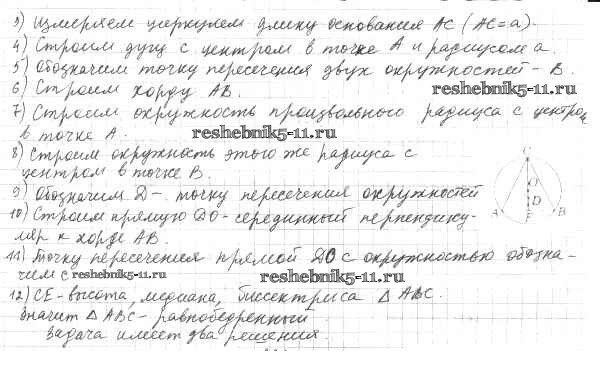 3) Измеряем циркулем длину основания АС (АС=а).
4) Строим дугу с центром в точке А и радиусом а.
5) Обозначим точку пересечения двух окружностей – В.
6) Строим хорду АВ.
reshebnik5-11.ru
7) Строим окружность произвольного радиуса с центром
в точке А.
reshebnik5-11.ru
8) Строим окружность этого же радиуса с
центром в точке В.
9) Обозначим D – точку пересечения окружностей
10) Строим прямую DO – серединный перпендику-
ляр к хорде АВ.
11) Точку пересечения прямой DO с окружностью обозна-
чим С
reshebnik5-11.ru
reshebnik5-11.ru
12) СЕ – высота, медиана, биссектриса △ АВС.
Значит △ АВС – равнобедренный.
Задача имеет два решения.
C
O
D
E
A
B